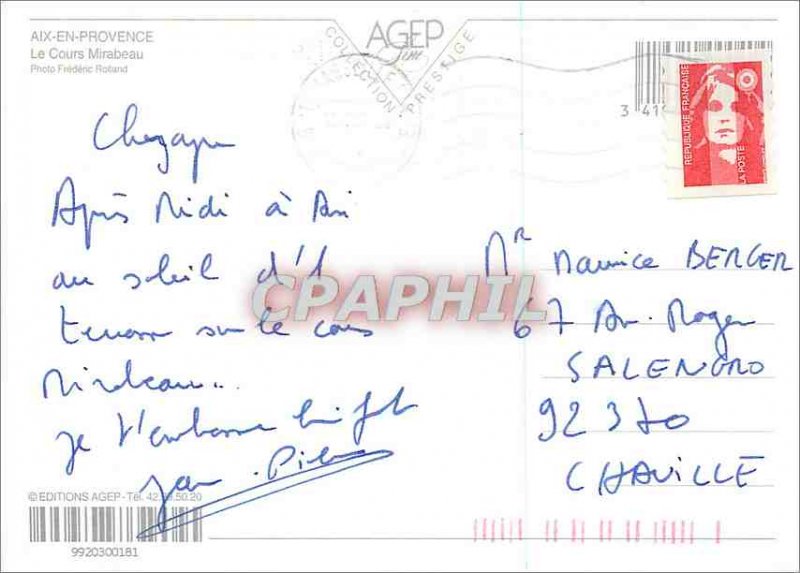 AIX-EN-PROVENCE
Le Cours Mirabeau
Photo Frédéric Rolland
AGEP
COLLECTION PRESTIGE
3 41
REPUBLIQUE FRANÇAISE
LA POSTE
Après Midi à Aix
au soleil d'1
terrasse sur le cours
Mirabeau..
je t'embrasse bien fort
Jean-Pierre
Mr Maurice BERGER
67 Av. Roger
SALENGRO
92370
CHAVILLE
CPAPHIL
© EDITIONS AGEP - Tél. 42.39.50.20
9920300181